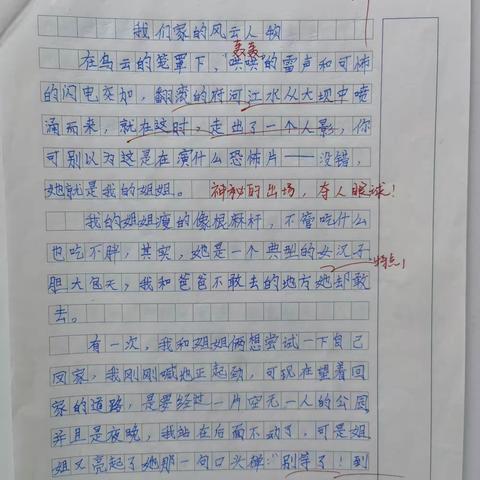 我们家的风云人物
轰轰
在乌云的笼罩下，"哄哄"的雷声和可怖
的闪电交加，翻滚的府河江水从大坝中喷
涌而来，就在这时，走出了一个人影，你
可别以为这是在演什么恐怖片——没错，
她就是我的姐姐。 神秘的出场，夺人眼球！
我的姐姐瘦的像根麻杆，不管吃什么
也吃不胖，其实，她是一个典型的女汉子
特点1
胆大包天，我和爸爸不敢去的地方她却敢
去。
有一次，我和姐姐俩想尝试一下自己
回家，我刚刚喊她正起劲，可现在望着回
家的道路，是要经过一片空无一人的公园
并且是夜晚，我站在后面不动了，可是姐
姐又亮起了她那一句口头禅："别等了！到